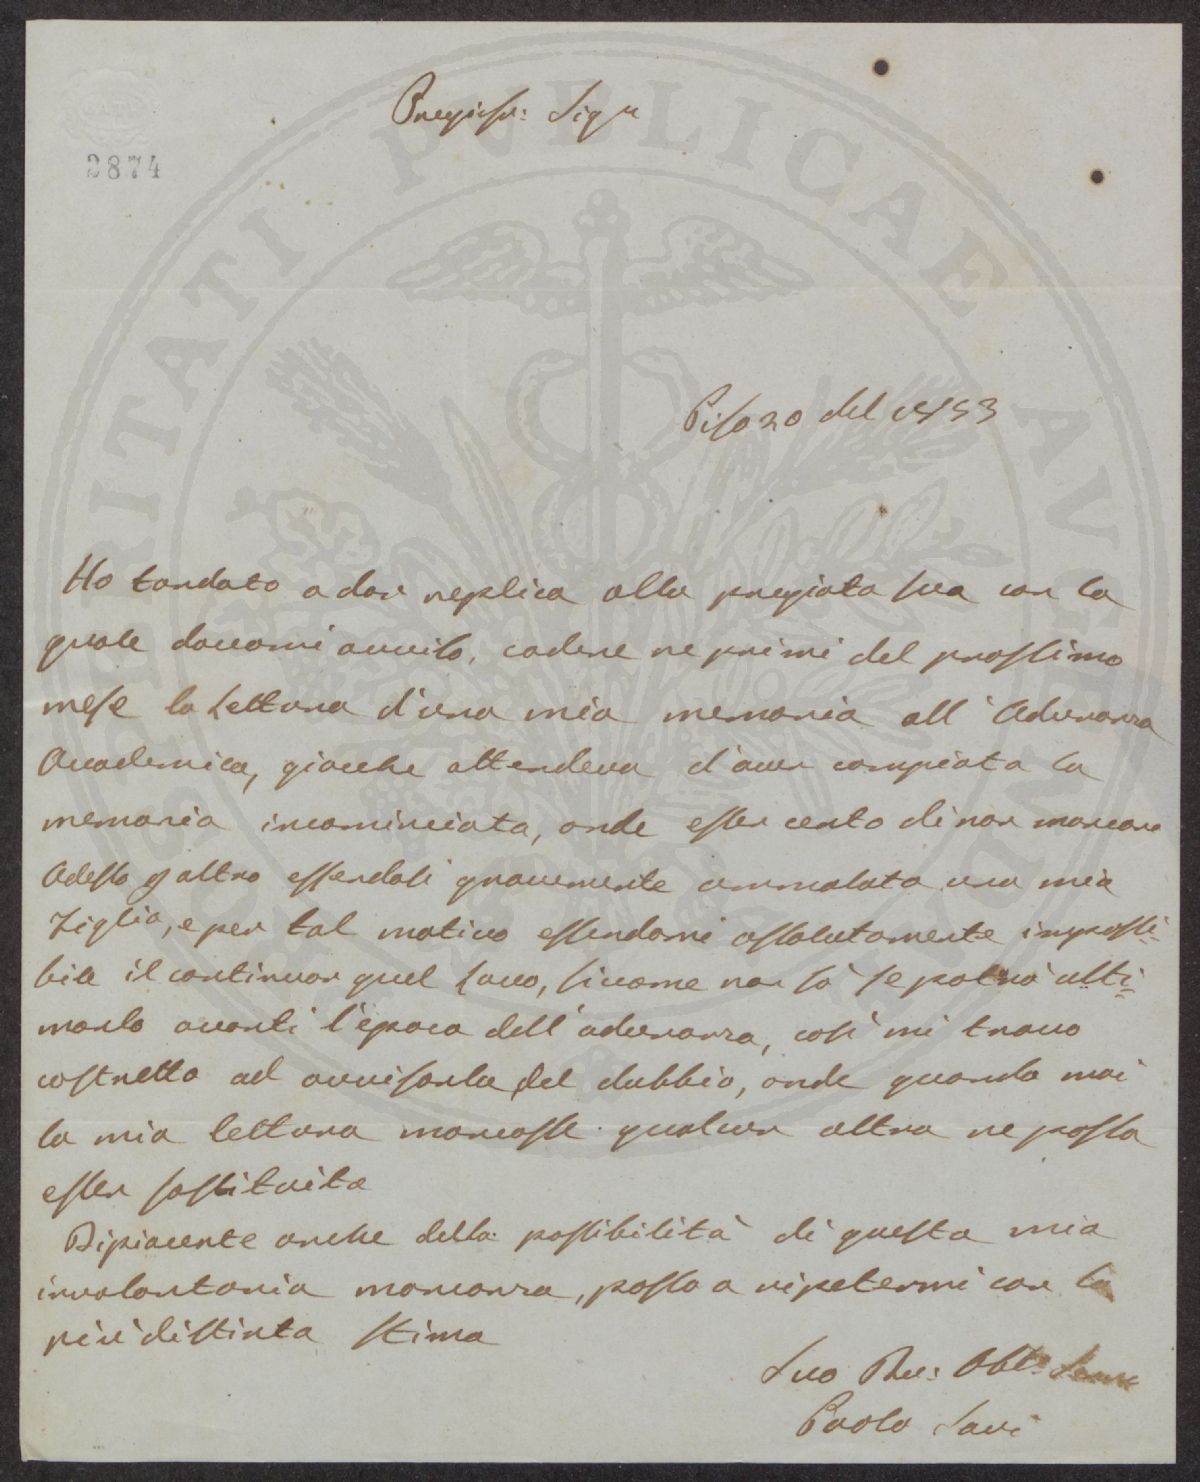 PROSPERITATI PVBLICAE AVGENDAE
2874
Pregiass: Sigr
Pisa 20 del 1853
Ho tardato a dar replica alla pregiata sua con la
quale davami avviso, cadere ne primi del prossimo
mese la lettura d'una mia memoria all'Adunanza
Accademica, giacche attendeva d'aver compiata la
memoria incominciata, onde esser certo di non mancare
Adesso altro essendosi gravemente ammalata una mia
Figlia, e per tal motivo essendomi assolutamente impossi=
bile il continuar quel lavo, siccome non sò se potrò ulti=
marlo avanti l'epoca dell'adunanza, così mi trovo
costretto ad avvisarla del dubbio, onde quando mai
la mia lettura mancasse qualcun altra ne possa
esser sostituita
Dispiacente anche della possibilità di questa mia
involontaria mancanza, passo a ripetermi con la
più distinta stima
Suo Dev: Obbl:
Paolo Savi